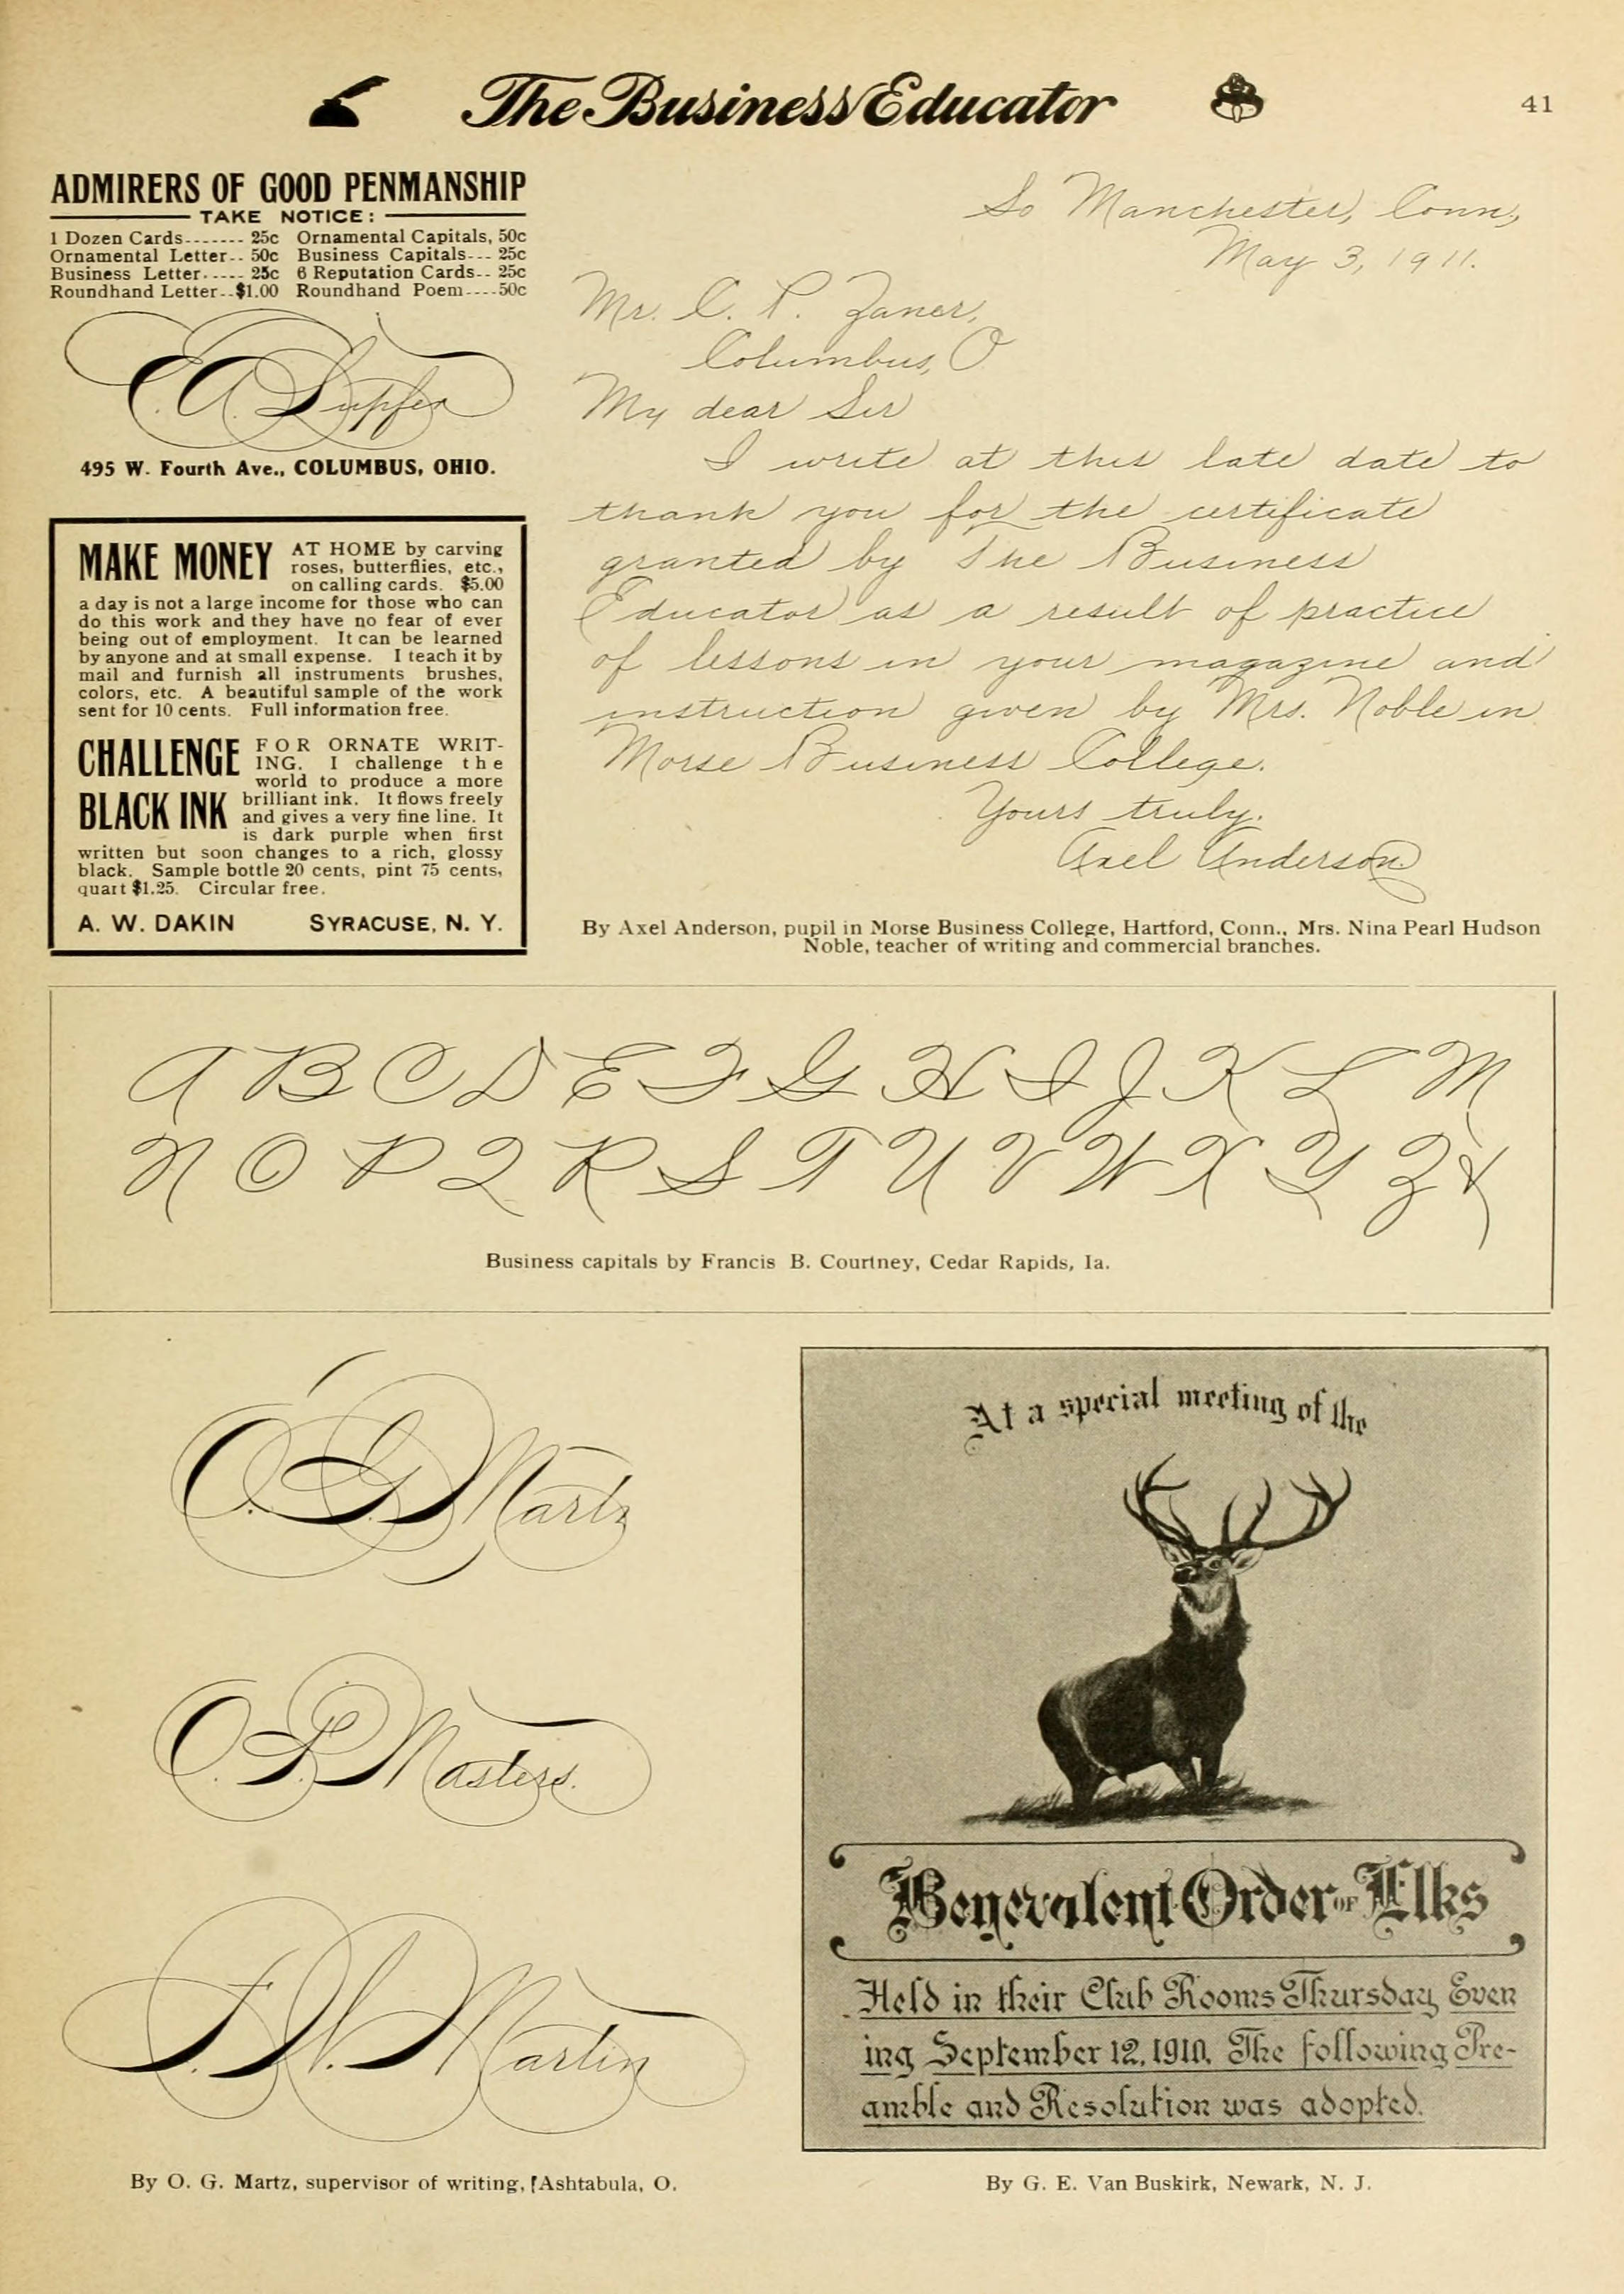 The Business Educator
41
ADMIRERS OF GOOD PENMANSHIP
TAKE NOTICE:
1 Dozen Cards------- 25c Ornamental Capitals, 50c
Ornamental Letter-- 50c Business Capitals--- 25c
Business Letter----- 25c 6 Reputation Cards-- 25c
Roundhand Letter--$1.00 Roundhand Poem----50c
E. A. Lupfer
495 W. Fourth Ave., COLUMBUS, OHIO.
MAKE MONEY AT HOME by carving
roses, butterflies, etc.,
on calling cards. $5.00
a day is not a large income for those who can
do this work and they have no fear of ever
being out of employment. It can be learned
by anyone and at small expense. I teach it by
mail and furnish all instruments brushes,
colors, etc. A beautiful sample of the work
sent for 10 cents. Full information free.
CHALLENGE FOR ORNATE WRIT-
ING. I challenge the
world to produce a more
BLACK INK brilliant ink. It flows freely
and gives a very fine line. It
is dark purple when first
written but soon changes to a rich, glossy
black. Sample bottle 20 cents, pint 75 cents,
quart $1.25. Circular free.
A. W. DAKIN SYRACUSE, N. Y.
So Manchester, Conn,
May 3, 1911.
Mr. C. P. Zaner,
Columbus, O
My dear Sir
I write at this late date to
thank you for the certificate
granted by The Business
Educator as a result of practice
of lessons in your magazine and
instruction given by Mrs. Noble in
Morse Business College.
Yours truly.
Axel Anderson
By Axel Anderson, pupil in Morse Business College, Hartford, Conn., Mrs. Nina Pearl Hudson
Noble, teacher of writing and commercial branches.
A B C D E F G H I J K L M
N O P Q R S T U V W X Y Z &
Business capitals by Francis B. Courtney, Cedar Rapids, Ia.
O. G. Martz
O. P. Masters.
F. W. Martin
By O. G. Martz, supervisor of writing, Ashtabula, O.
At a special meeting of the
Benevolent Order OF Elks
Held in their Club Rooms Thursday Even
ing September 12, 1910. The following Pre-
amble and Resolution was adopted.
By G. E. Van Buskirk, Newark, N. J.